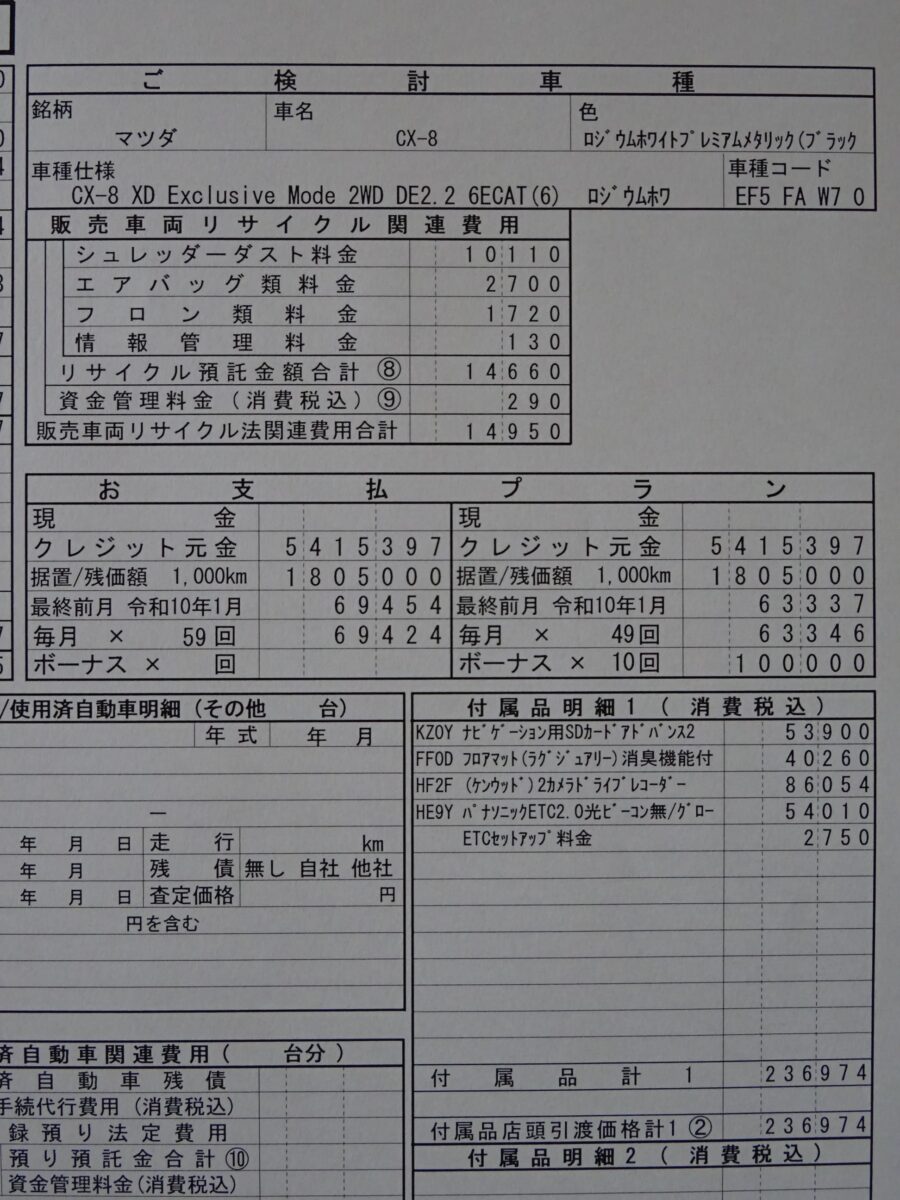 ご検討車種
銘柄 車名 色
マツダ CX-8 ﾛｼﾞｳﾑﾎﾜｲﾄﾌﾟﾚﾐｱﾑﾒﾀﾘｯｸ(ﾌﾞﾗｯｸ
車種仕様 車種コード
CX-8 XD Exclusive Mode 2WD DE2.2 6ECAT(6) ﾛｼﾞｳﾑﾎﾜ EF5 FA W7 0
販売車両リサイクル関連費用
シュレッダーダスト料金 10110
エアバッグ類料金 2700
フロン類料金 1720
情報管理料金 130
リサイクル預託金額合計 ⑧ 14660
資金管理料金(消費税込)⑨ 290
販売車両リサイクル法関連費用合計 14950
お支払プラン
現金 現金
クレジット元金 5415397 クレジット元金 5415397
据置/残価額 1,000km 1805000 据置/残価額 1,000km 1805000
最終前月 令和10年1月 69454 最終前月 令和10年1月 63337
毎月 × 59回 69424 毎月 × 49回 63346
ボーナス × 回 ボーナス × 10回 100000
/使用済自動車明細(その他 台)
年式 年 月
ー
年 月 日 走行 km
年 月 残債 無し 自社 他社
年 月 日 査定価格 円
円を含む
付属品明細1(消費税込)
KZ0Y ﾅﾋﾞｹﾞｰｼｮﾝ用SDｶｰﾄﾞｱﾄﾞﾊﾞﾝｽ2 53900
FF0D ﾌﾛｱﾏｯﾄ(ﾗｸﾞｼﾞｭｱﾘｰ)消臭機能付 40260
HF2F (ｹﾝｳｯﾄﾞ)2ｶﾒﾗﾄﾞﾗｲﾌﾞﾚｺｰﾀﾞｰ 86054
HE9Y ﾊﾟﾅｿﾆｯｸETC2.0光ﾋﾞｰｺﾝ無/ｸﾞﾛｰ 54010
ETCｾｯﾄｱｯﾌﾟ料金 2750
付属品計1 236974
付属品店頭引渡価格計1 ② 236974
付属品明細2(消費税込)
済自動車関連費用( 台分)
済自動車残債
手続代行費用(消費税込)
録預り法定費用
預り預託金合計⑩
資金管理料金(消費税込)